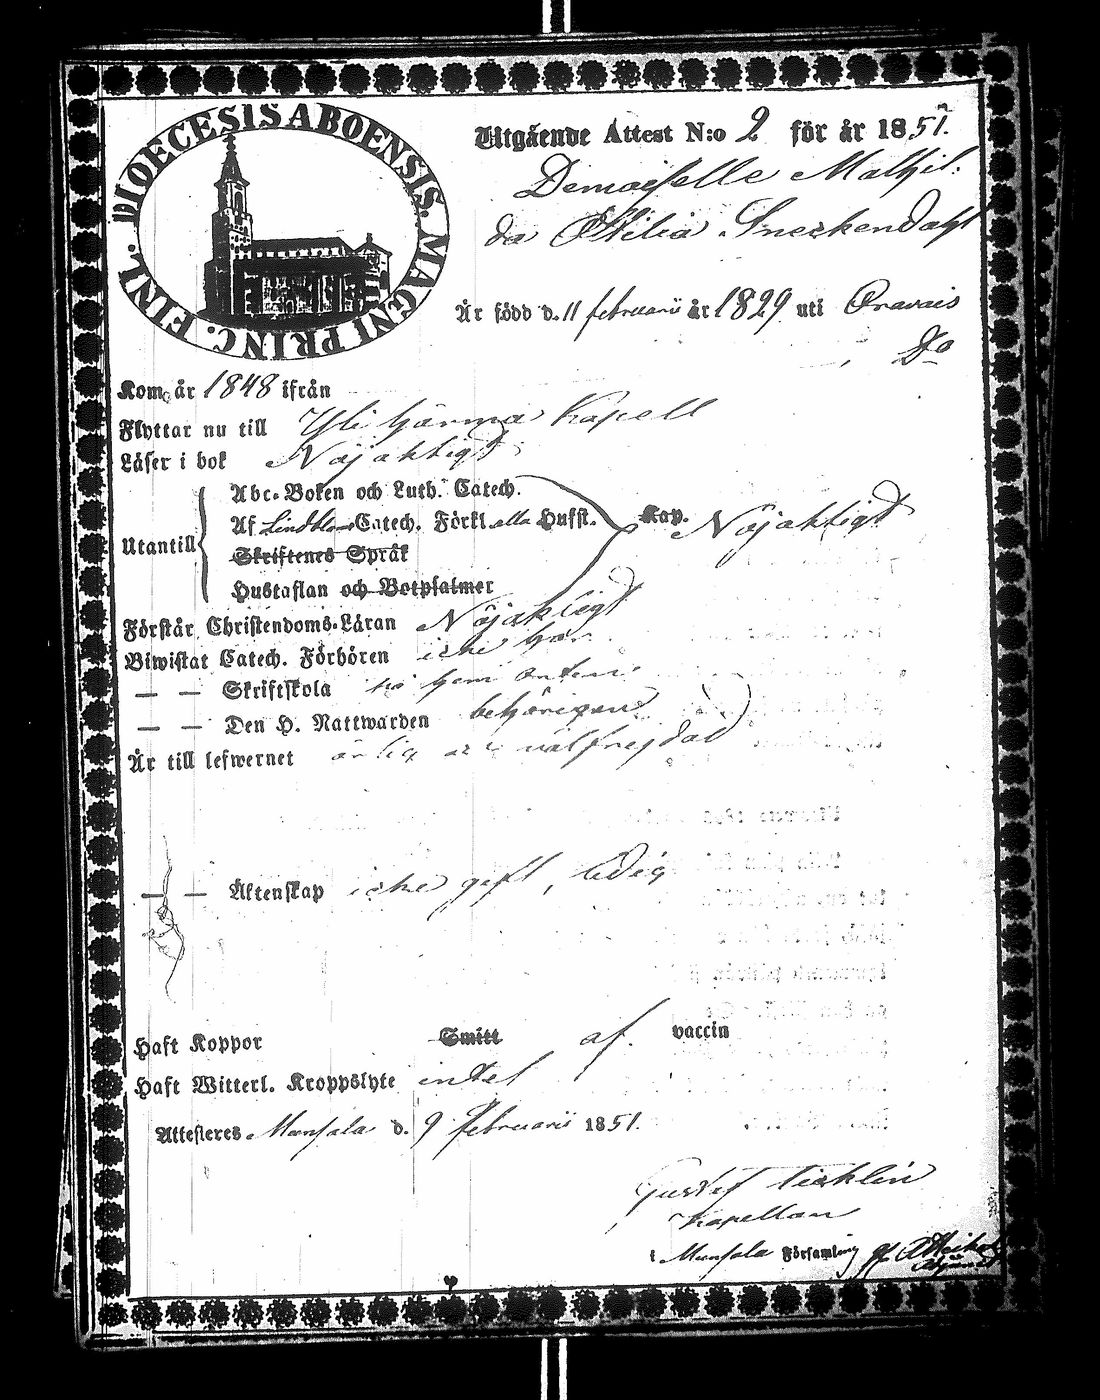 DIOECESIS ABOENSIS. MAGNI PRINC. FINL.
Utgående Attest N:o 2 för år 1851.
Demoiselle Mathil-
da Otilia Sneckendahl
Är född d. 11 februarii år 1829 uti Oravais
Do
Kom år 1848 ifrån
Flyttar nu till Yli Härmä Kapell
Läser i bok Nöjaktigt
Abc-Boken och Luth. Catech.
Af Lindbloms Catech. Förkl. alla Hufst. Kap. Nöjaktigt
Utantill
Skriftenes Språk
Hustaflan och Botpsalmer
Förstår Christendoms-Läran Nöjaktigt
Biwistat Catech. Förhören icke här
— — Skriftskola på hem orten
— — Den H. Nattwarden behörigen
Är till lefwernet ärlig och välfrejdad
— — Äktenskap icke gift, ledig
Haft Koppor Smitt af vaccin
Haft Witterl. Kroppslyte intet
Attesteres Munsala d. 9 Februarii 1851.
Gustaf
Kapellan
i Munsala Församling